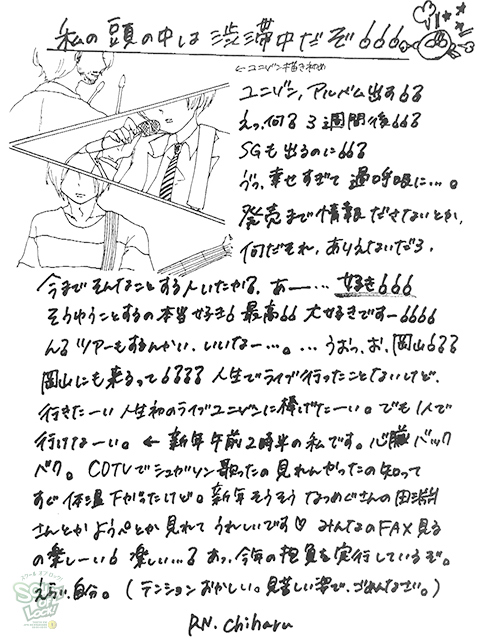 私の頭の中は渋滞中だぞ!!!
←ユニゾン描き初め
ユニゾン、アルバム出す!?
えっ、何!? 3週間後!!?
SGも出るのに!!?
うっ、幸せすぎて過呼吸に…。
発売まで情報ださないとか、
何だそれ、ありえないだろ、
今までそんなことする人いたかな、あー…好き!!!
そうゆうことするの本当好き! 最高!! 大好きですー!!!!
ん? ツアーもするんかい、いいなー…。…うおっ、お、岡山!?!?
岡山にも来るって!?!? 人生でライブ行ったことないけど、
行きたーい 人生初のライブユニゾンに捧げたーい。でも1人で
行けなーい。← 新年午前2時半の私です。心臓バック
バク。CDTVでシュガソン歌ったの見れんかったの知って
すぐ体温下がったけど。新年そうそうなつめぐさんの田淵
さんとかようぺとか見れてうれしいです♡ みんなのFAX見る
の楽しーい! 楽しい…? あっ、今年の抱負を実行しているぞ。
えらい、自分。(テンションおかしい。見苦しい姿で、ごめんなさい。)
RN. chiharu
SCHOOL OF LOCK!